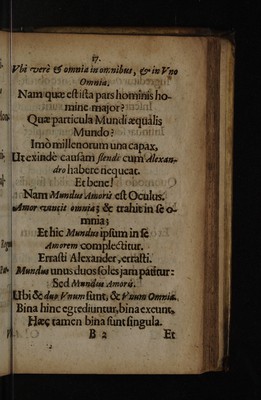 17.
Vbi verè & omnia in omnibus, & in Vno
Omnia.
Nam quæ est ista pars hominis ho-
mine major?
Quæ particula Mundi æqualis
Mundo?
Imò millenorum una capax,
Ut exinde causam flendi cum Alexan-
dro habere nequeat.
Et bene!
Nam Mundus Amoris est Oculus.
Amor vincit omnia; & trahit in se o-
mnia;
Et hic Mundus ipsum in se
Amorem complectitur.
Errasti Alexander, errasti.
Mundus unus duos soles jam patitur:
Sed Mundus Amoris.
Ubi & duo Vnum sunt, & Vnum Omnia.
Bina hinc egrediuntur, bina exeunt,
Hæc tamen bina sunt singula.
B 2 Et